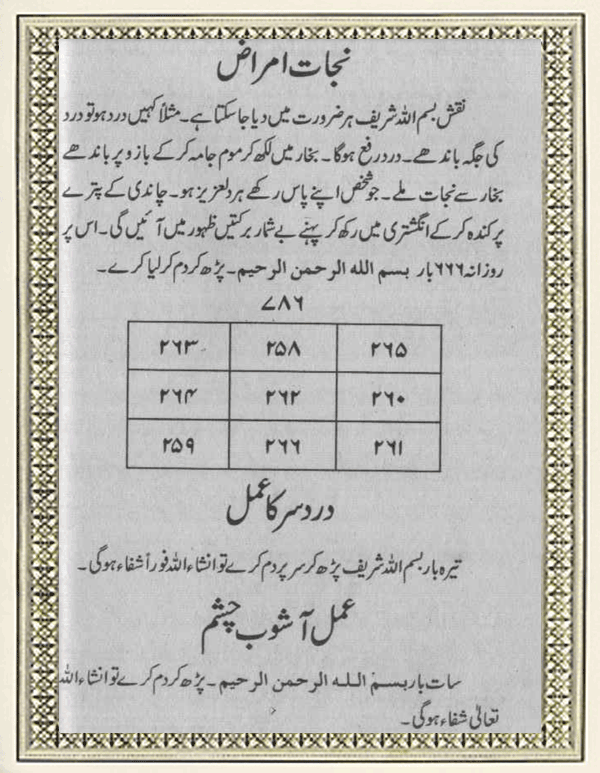 نجات امراض
نقش بسم اللہ شریف ہر ضرورت میں دیا جا سکتا ہے۔ مثلاً کہیں درد ہو تو درد
کی جگہ باندھے۔ درد رفع ہوگا۔ بخار میں لکھ کر موم جامہ کر کے بازو پر باندھے
بخار سے نجات ملے۔ جو شخص اپنے پاس رکھے ہر دلعزیز ہو۔ چاندی کے پترے
پر کندہ کر کے انگشتری میں رکھ کر پہنے بے شمار برکتیں ظہور میں آئیں گی۔ اس پر
روزانہ ۶۶۶ بار بسم الله الرحمن الرحیم۔ پڑھ کر دم کر لیا کرے۔
۷۸۶
۲۶۵ ۲۵۸ ۲۶۳
۲۶۰ ۲۶۲ ۲۶۴
۲۶۱ ۲۶۶ ۲۵۹
درد سر کا عمل
تیرہ بار بسم اللہ شریف پڑھ کر سر پر دم کرے تو انشاء اللہ فوراً شفاء ہوگی۔
عمل آشوب چشم
سات بار بسم اللہ الرحمن الرحیم۔ پڑھ کر دم کرے تو انشاء اللہ
تعالیٰ شفاء ہوگی۔